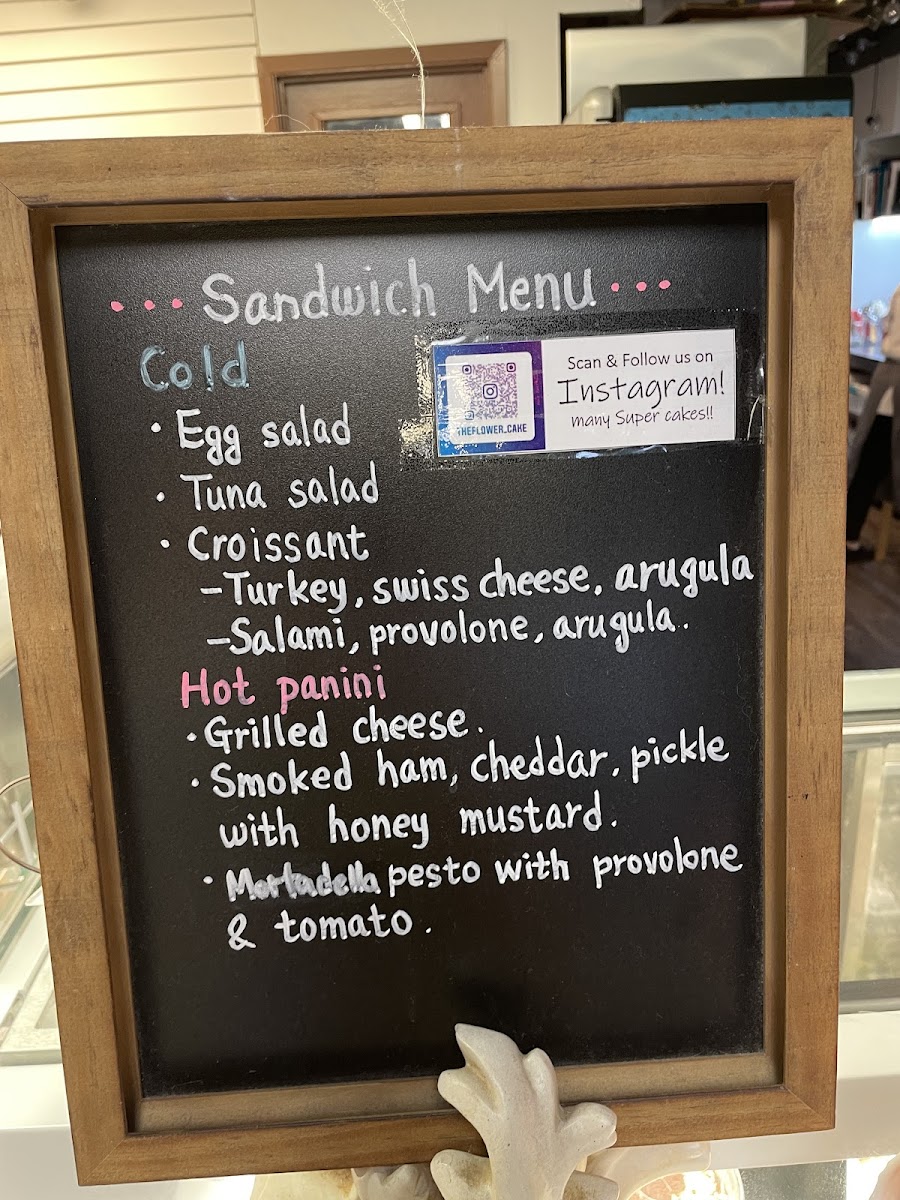 ...Sandwich Menu...
Cold
Scan & Follow us on
Instagram!
many Super cakes!!
THEFLOWER_CAKE
• Egg salad
• Tuna salad
• Croissant
-Turkey, swiss cheese, arugula
-Salami, provolone, arugula.
Hot panini
• Grilled cheese.
• Smoked ham, cheddar, pickle
with honey mustard.
• Mortadella pesto with provolone
& tomato.